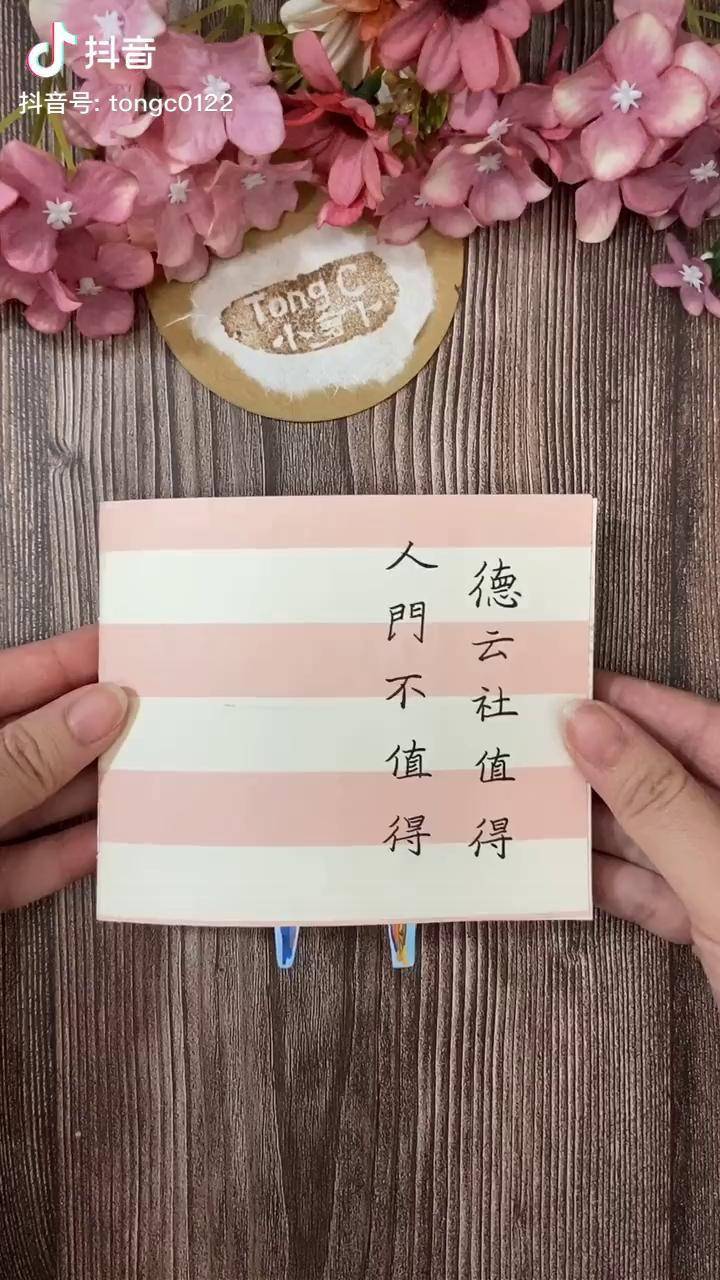 抖音
抖音号: tongc0122
Tong C
德云社值得
人門不值得